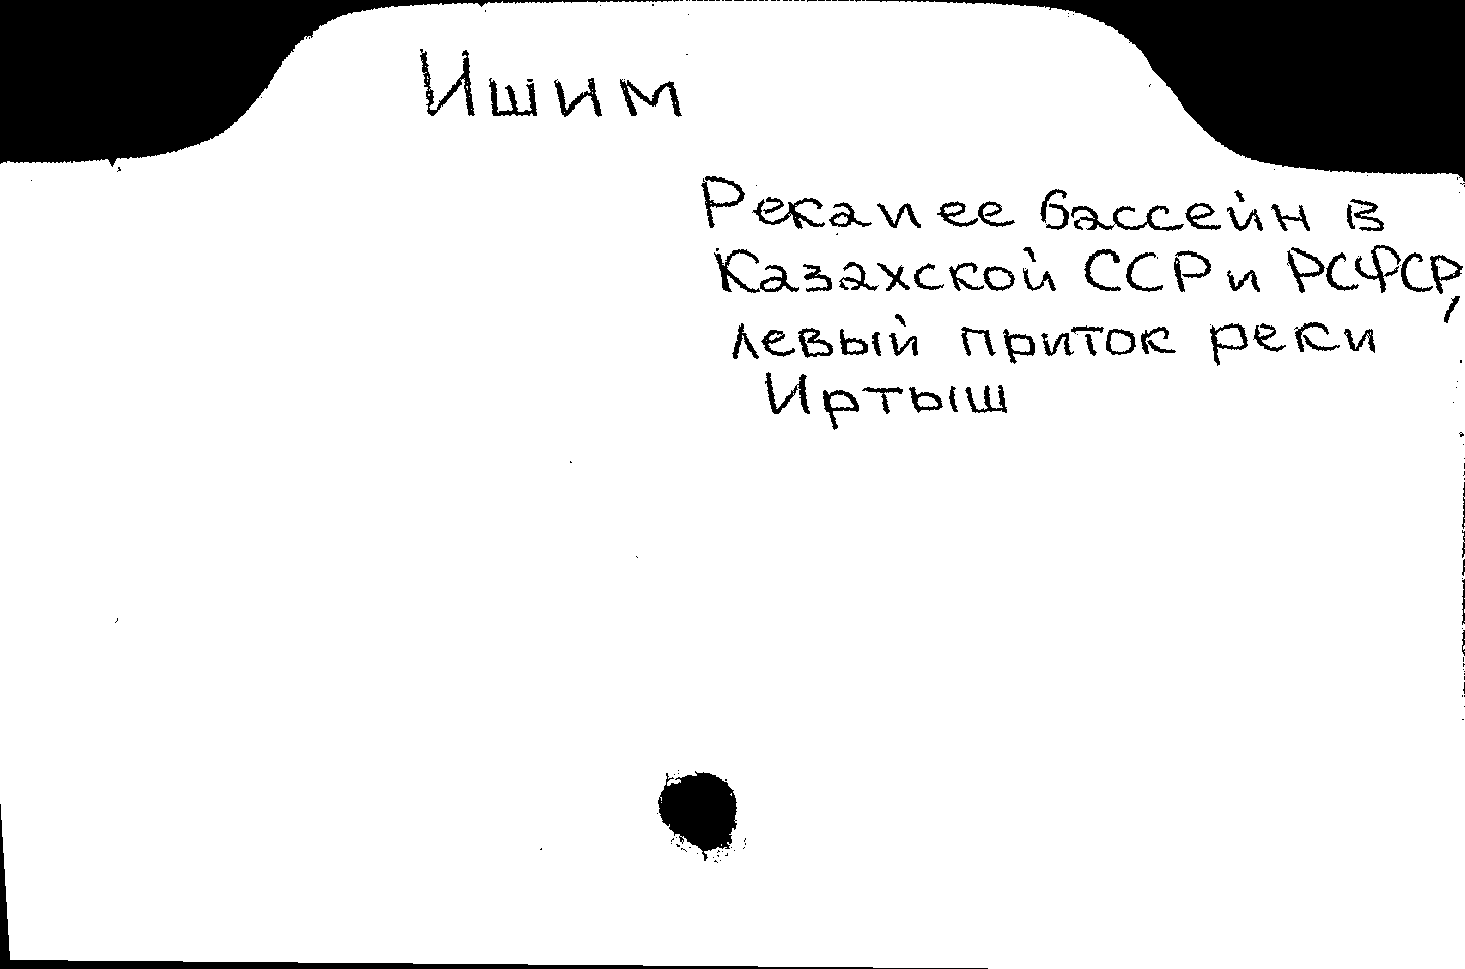 Ишим
Река и ее бассейн в
Казахской ССР и РСФСР,
левый приток реки
Иртыш